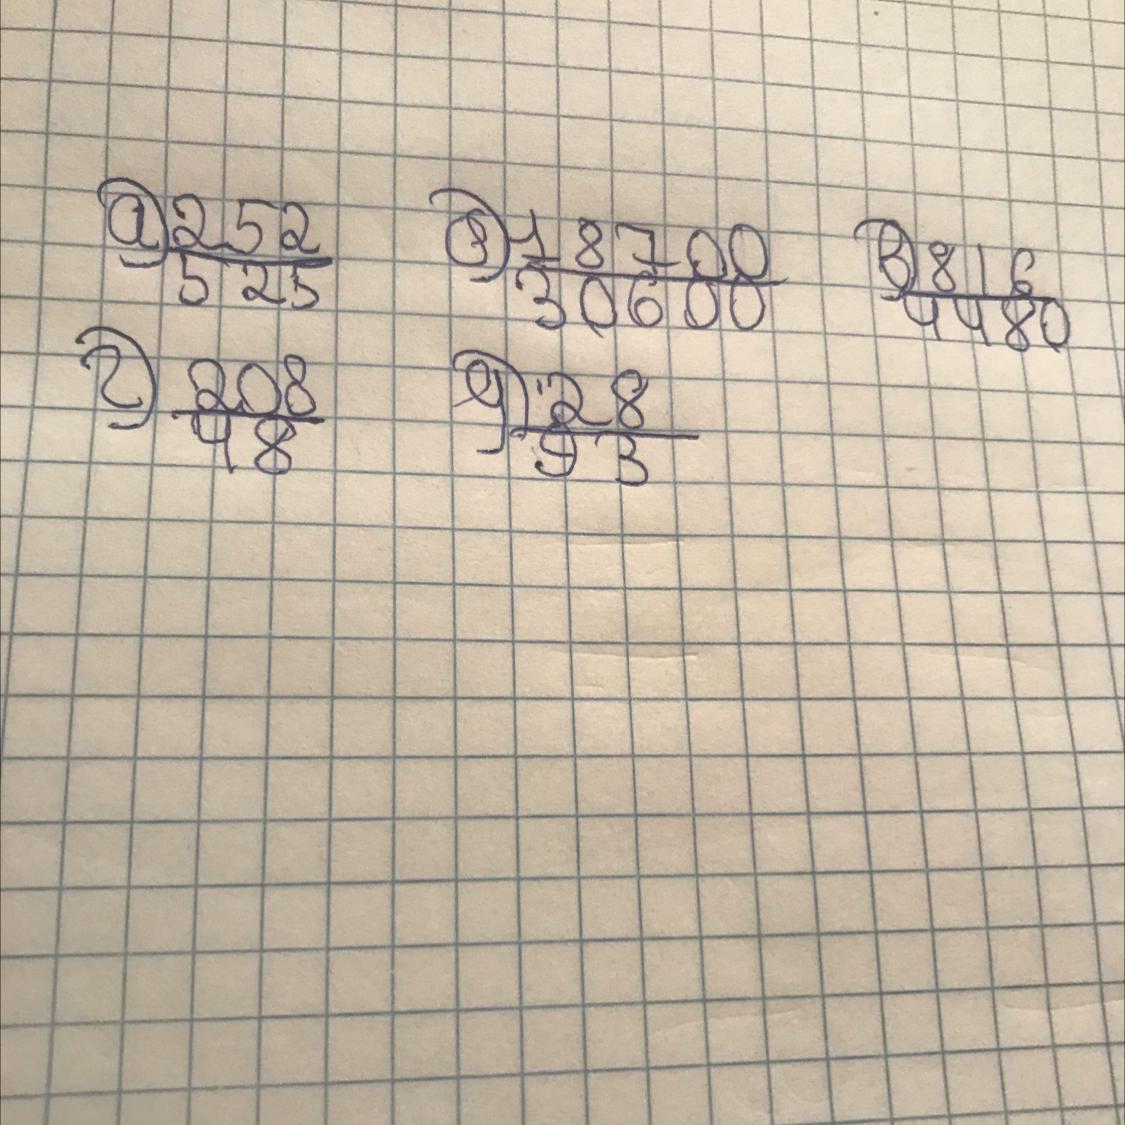 а) 252/525 б) 18700/30600 в) 816/4480
г) 208/48 д) 28/93